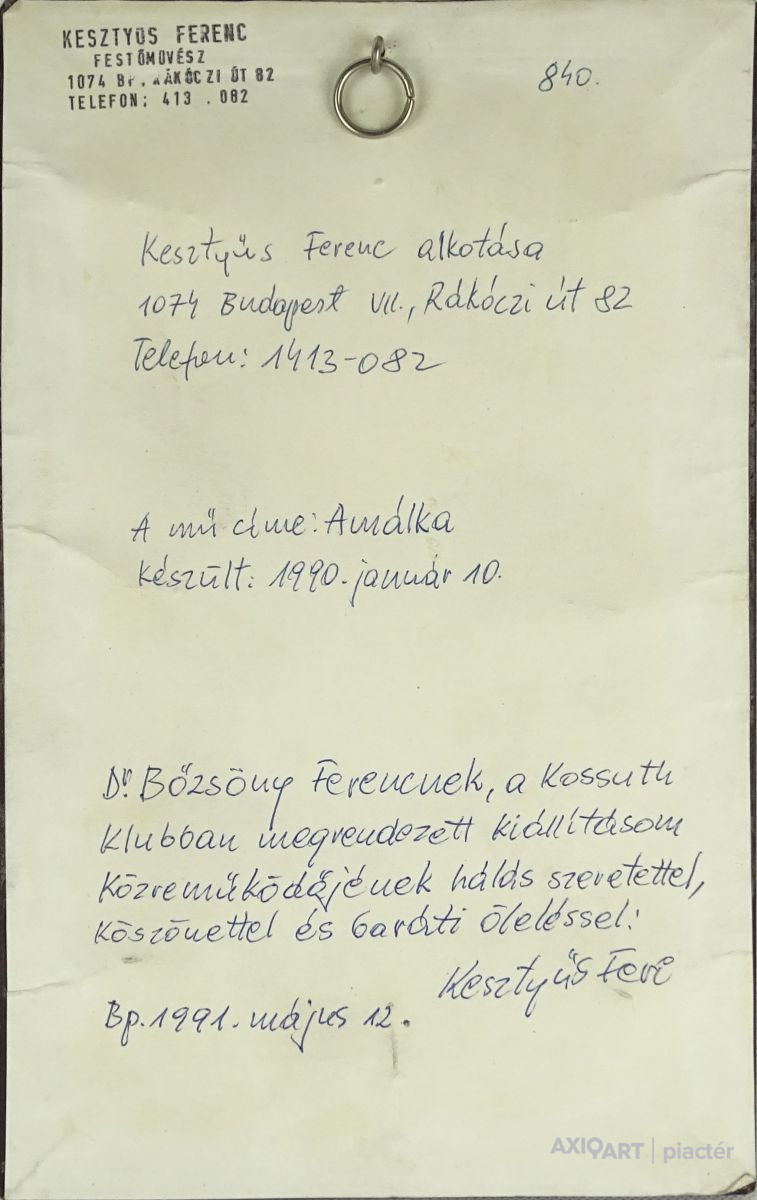 KESZTYŰS FERENC
FESTŐMŰVÉSZ
1074 BP. RÁKÓCZI ÚT 82
TELEFON: 413 . 082
840.
Kesztyűs Ferenc alkotása
1074 Budapest VII., Rákóczi út 82
Telefon: 1413-082
A mű címe: Amálka
készült: 1990. január 10.
Dr. Bőzsöny Ferencnek, a Kossuth
Klubban megrendezett kiállításom
közreműködőjének hálás szeretettel,
köszönettel és baráti öleléssel:
Kesztyűs Feri
Bp. 1991. május 12.
AXIOART | piactér